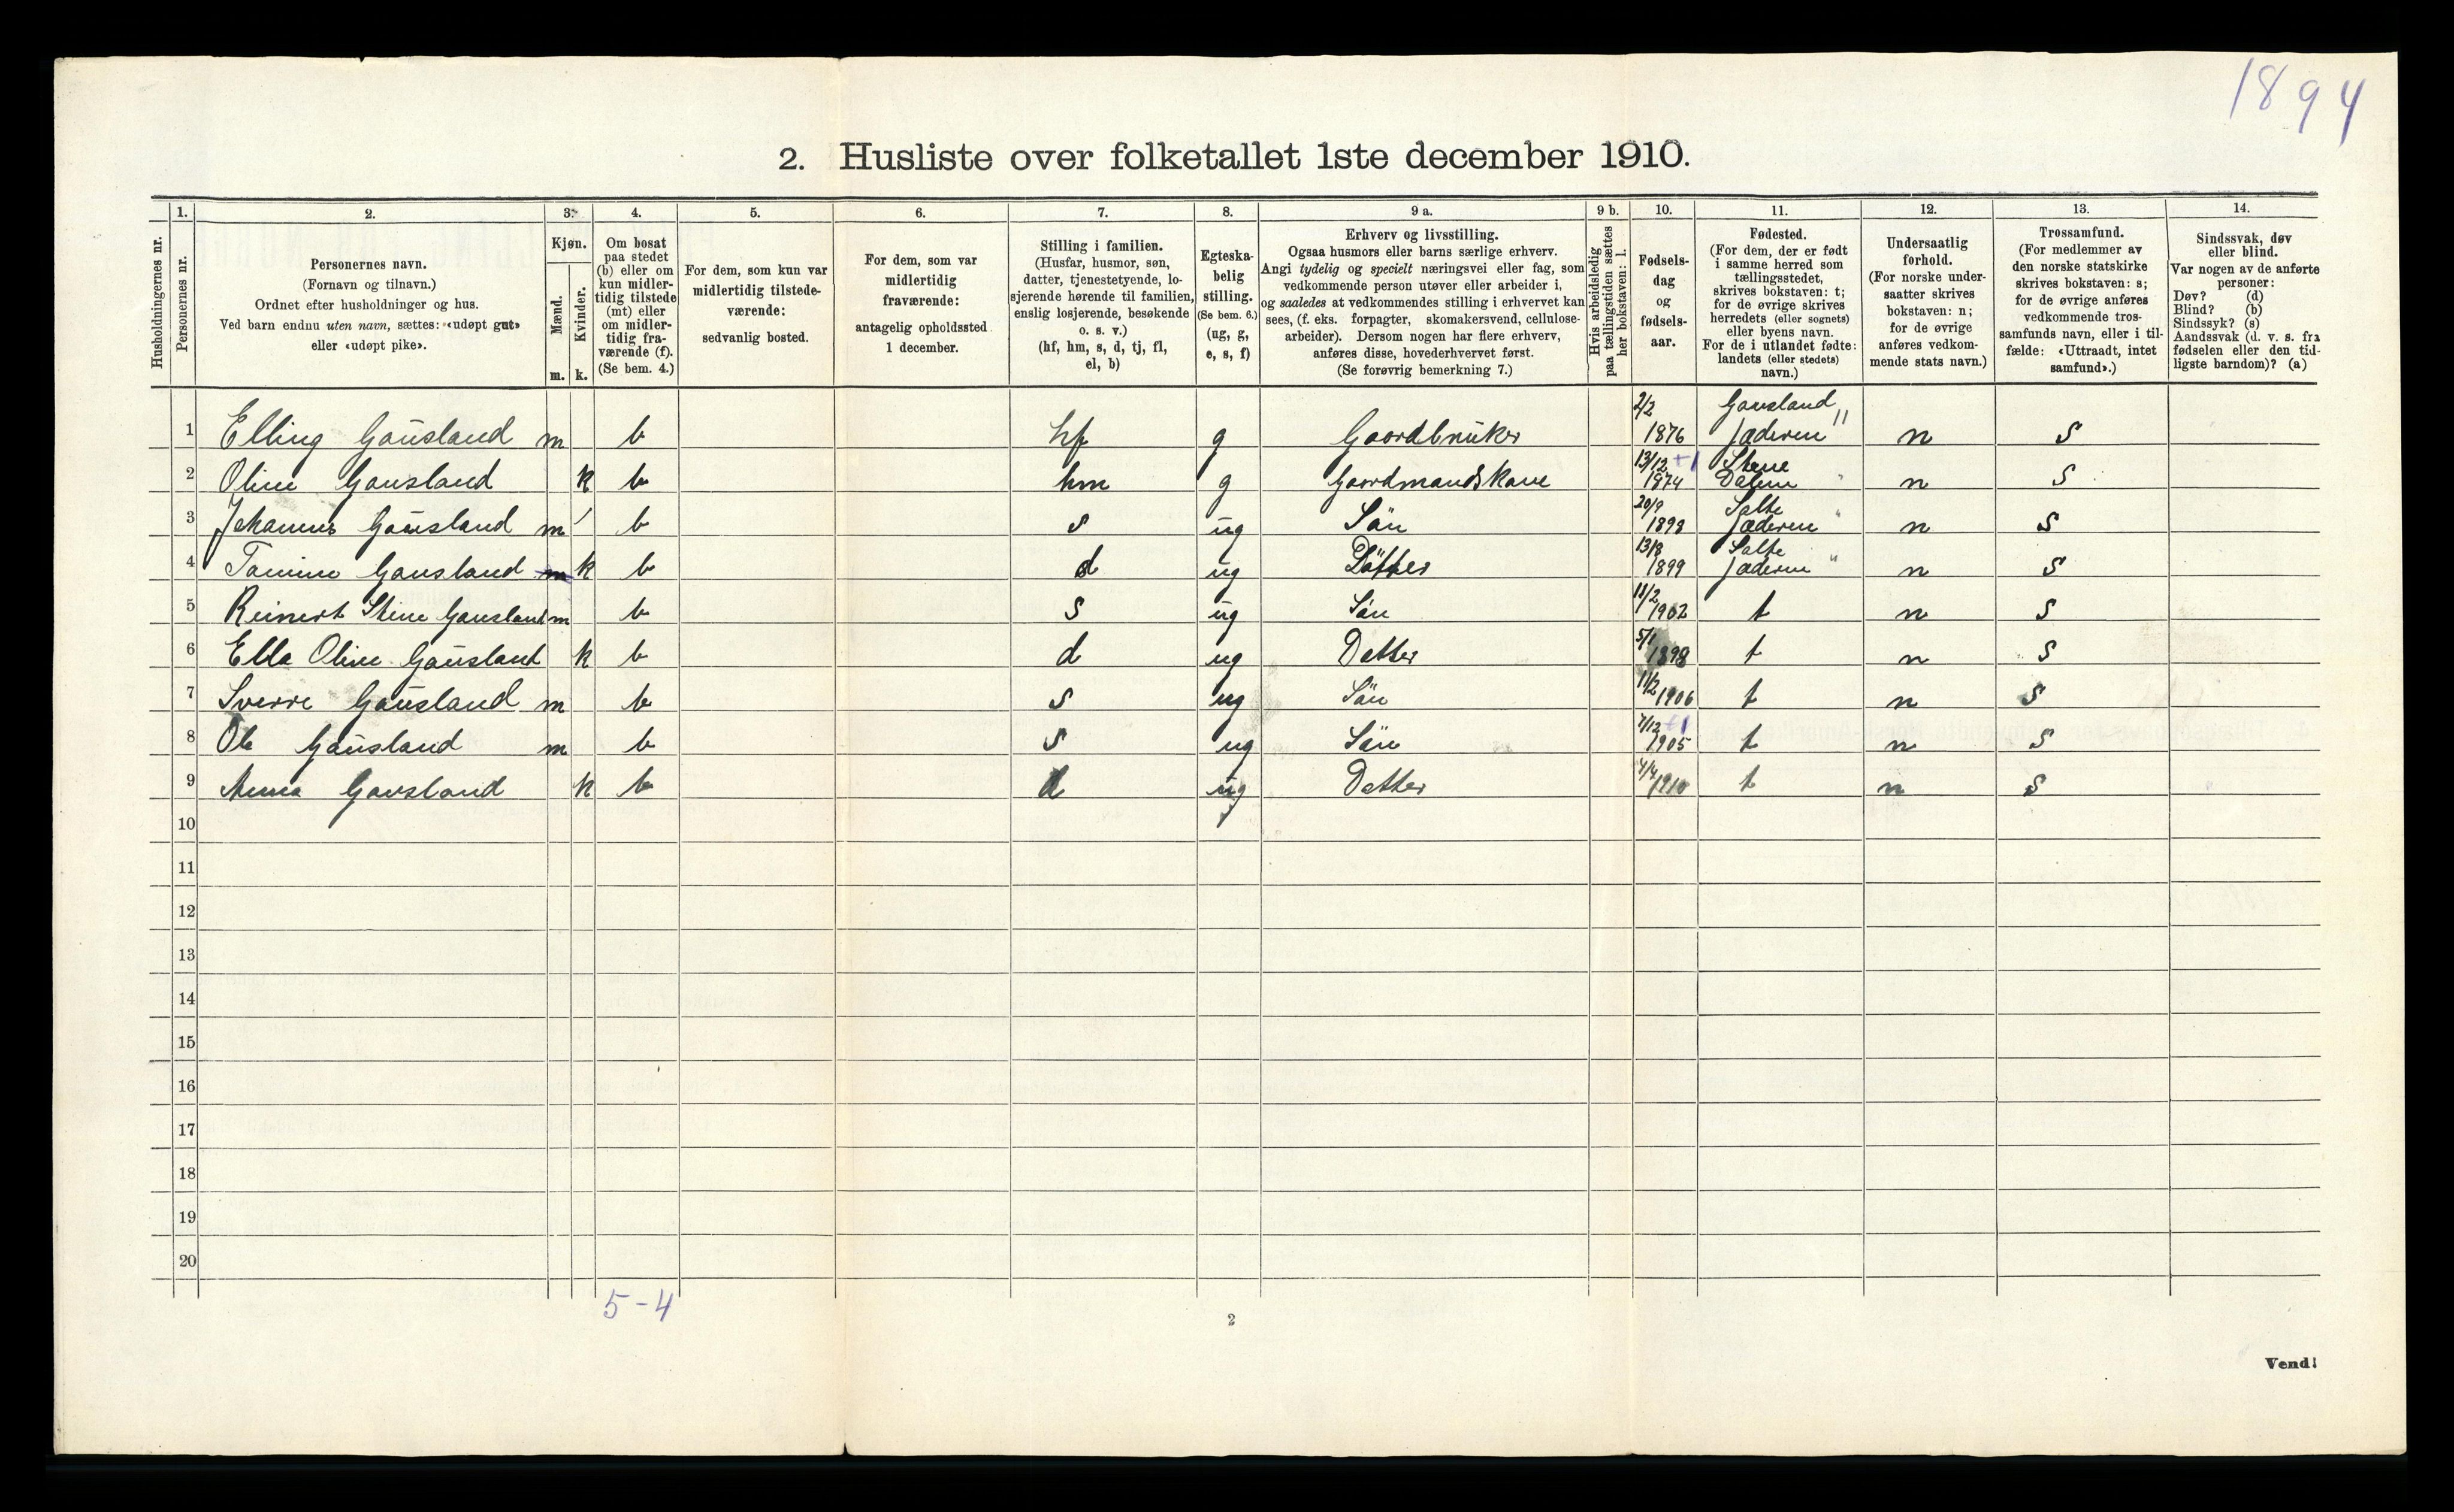 1894
2. Husliste over folketallet 1ste december 1910.
Husholdningernes nr.
1.
Personernes nr.
2.
Personernes navn.
(Fornavn og tilnavn.)
Ordnet efter husholdninger og hus.
Ved barn endnu uten navn, sættes: «udøpt gut»
eller «udøpt pike».
3.
Kjøn.
Mænd.
Kvinder.
m. k.
4.
Om bosat
paa stedet
(b) eller om
kun midler-
tidig tilstede
(mt) eller
om midler-
tidig fra-
værende (f).
(Se bem. 4.)
5.
For dem, som kun var
midlertidig tilstede-
værende:
sedvanlig bosted.
6.
For dem, som var
midlertidig
fraværende:
antagelig opholdssted
1 december.
7.
Stilling i familien.
(Husfar, husmor, søn,
datter, tjenestetyende, lo-
sjerende hørende til familien,
enslig losjerende, besøkende
o. s. v.)
(hf, hm, s, d, tj, fl,
el, b)
8.
Egteska-
belig
stilling.
(Se bem. 6.)
(ug, g,
e, s, f)
9 a.
Erhverv og livsstilling.
Ogsaa husmors eller barns særlige erhverv.
Angi tydelig og specielt næringsvei eller fag, som
vedkommende person utøver eller arbeider i,
og saaledes at vedkommendes stilling i erhvervet kan
sees, (f. eks. forpagter, skomakersvend, cellulose-
arbeider). Dersom nogen har flere erhverv,
anføres disse, hovederhvervet først.
(Se forøvrig bemerkning 7.)
9 b.
Hvis arbeidsledig
paa tællingstiden sættes
her bokstaven: l.
10.
Fødsels-
dag
og
fødsels-
aar.
11.
Fødested.
(For dem, der er født
i samme herred som
tællingsstedet,
skrives bokstaven: t;
for de øvrige skrives
herredets (eller sognets)
eller byens navn.
For de i utlandet fødte:
landets (eller stedets)
navn.)
12.
Undersaatlig
forhold.
(For norske under-
saatter skrives
bokstaven: n;
for de øvrige
anføres vedkom-
mende stats navn.)
13.
Trossamfund.
(For medlemmer av
den norske statskirke
skrives bokstaven: s;
for de øvrige anføres
vedkommende tros-
samfunds navn, eller i til-
fælde: «Uttraadt, intet
samfund».)
14.
Sindssvak, døv
eller blind.
Var nogen av de anførte
personer:
Døv? (d)
Blind? (b)
Sindssyk? (s)
Aandssvak (d. v. s. fra
fødselen eller den tid-
ligste barndom)? (a)
1 Elling Gausland m b hf g Gaardbruker 2/2 1876 Gausland Jæderen " n S
2 Oline Gausland k b hm g Gaardmandskone 13/12 +1 1874 Stene n S
3 Johannes Gausland m b s ug Sön 20/9 1898 Salte Jæderen " n S
4 Gausland k b d ug 13/8 1899 Salte Jæderen " n S
5 Reinert Stene Gausland m b s ug Sön 11/2 1902 t n S
6 Ella Oline Gausland k b d ug Datter 5/1 1898 t n S
7 Sverre Gausland m b s ug Sön 11/2 1906 t n S
8 Ole Gausland m b s ug Sön 7/12 +1 1905 t n S
9 Anna Gausland k b d ug Datter 4/4 1910 t n S
10
11
12
13
14
15
16
17
18
19
20
5-4
2
Vend!